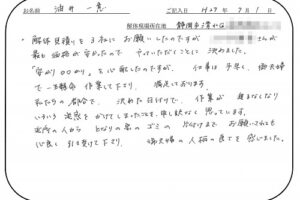 お名前 油井 一恵 ご記入日 H27年9月1日
解体現場所在地 静岡市清水区
・解体見積りを3社にお願いしたのですが さんが
最も価格が安かったので やっていただくことに決めました。
"安かろ悪かろ"を心配したのですが、仕事は手早く、御夫婦
で一生懸命 作業して下さり、満足しております。
私たちの都合で、決めた日付けで、作業が
いろいろ迷惑をかけてしまったことを、申し訳なく思っています。
近所の人から となりの家のゴミの片付けまでお願いされても
心良く引き受けて下さり、御夫婦の人柄の良さを感じました。